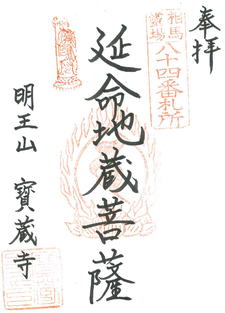 奉拝
相馬
霊場
八十四番札所
延命地蔵菩薩
明王山 寳蔵寺